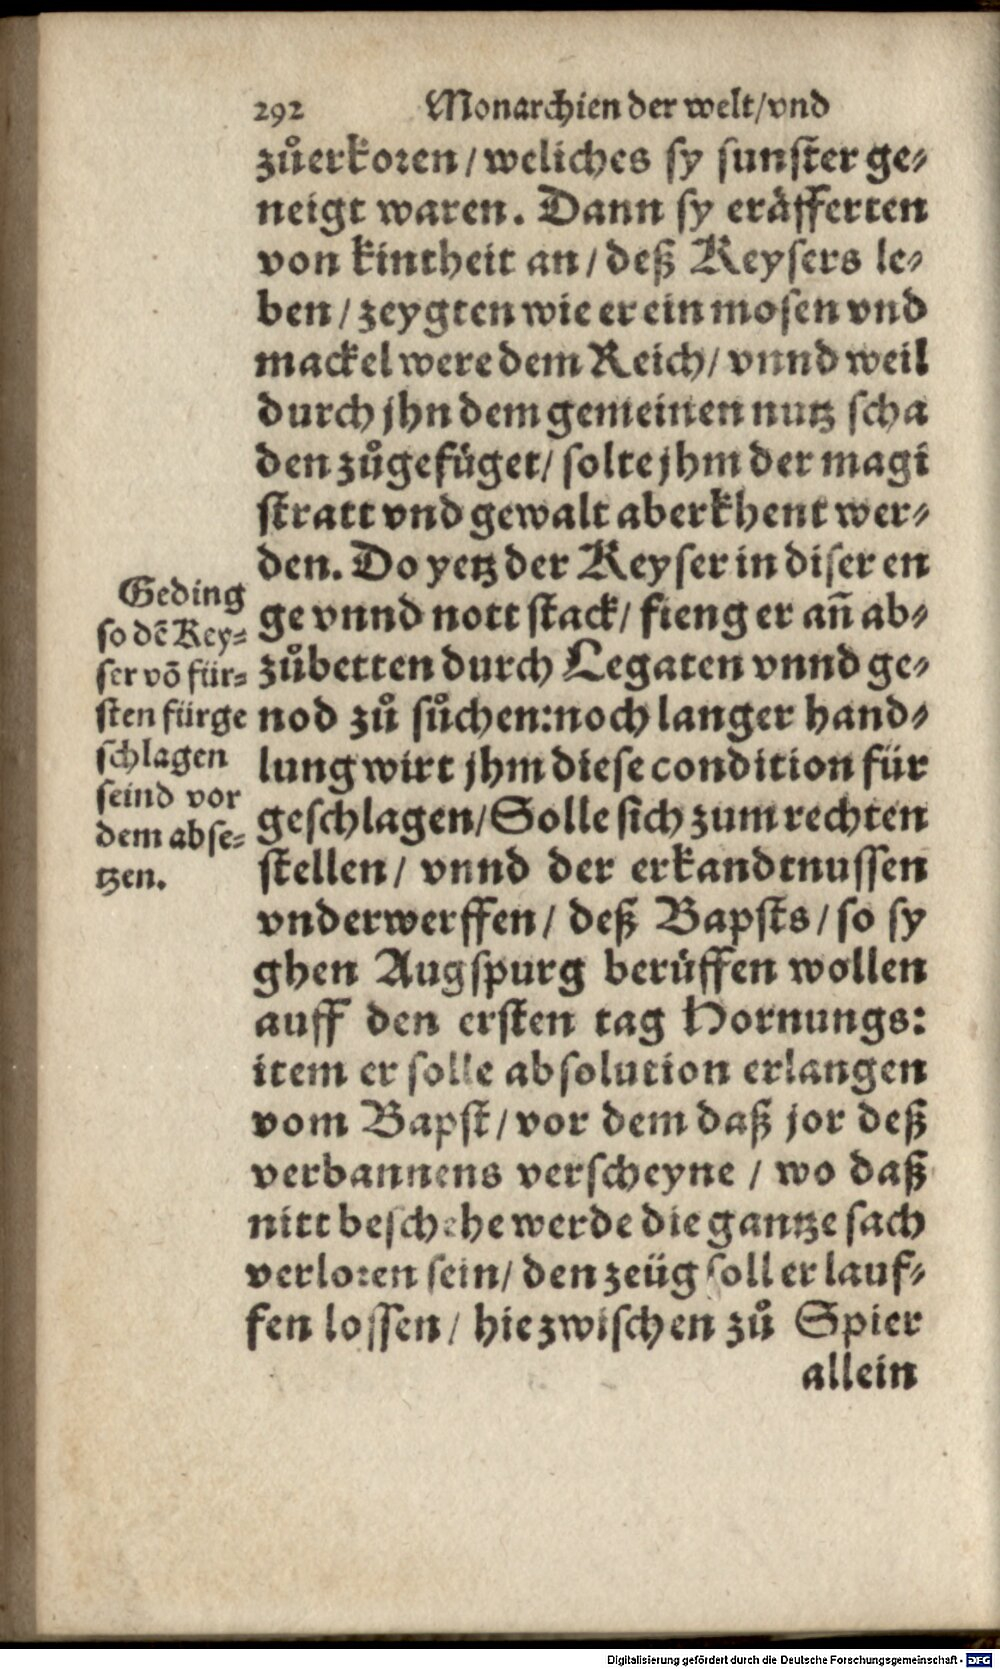 292 Monarchien der welt/vnd
zůerkoren/weliches sy sunster ge-
neigt waren. Dann sy eräfferten
von kintheit an/deß Keysers le-
ben/zeygten wie er ein mosen vnd
mackel were dem Reich/vnnd weil
durch jhn dem gemeinen nutz scha
den zůgefüget/solte jhm der magi
stratt vnd gewalt aberkhent wer-
den. Do yetz der Keyser in diser en
ge vnnd nott stack/fieng er añ ab-
zůbetten durch Legaten vnnd ge-
nod zů sůchen:noch langer hand-
lung wirt jhm diese condition für
geschlagen/Solle sich zum rechten
stellen/vnnd der erkandtnussen
vnderwerffen/deß Bapsts/so sy
ghen Augspurg berüffen wollen
auff den ersten tag Hornungs:
item er solle absolution erlangen
vom Bapst/vor dem daß jor deß
verbannens verscheyne/wo daß
nitt beschehe werde die gantze sach
verloren sein/den zeüg soll er lauf-
fen lossen/hiezwischen zů Spier
allein
Geding
so dẽ Key-
ser võ für-
sten fürge
schlagen
seind vor
dem abse-
tzen.
Digitalisierung gefördert durch die Deutsche Forschungsgemeinschaft - DFG